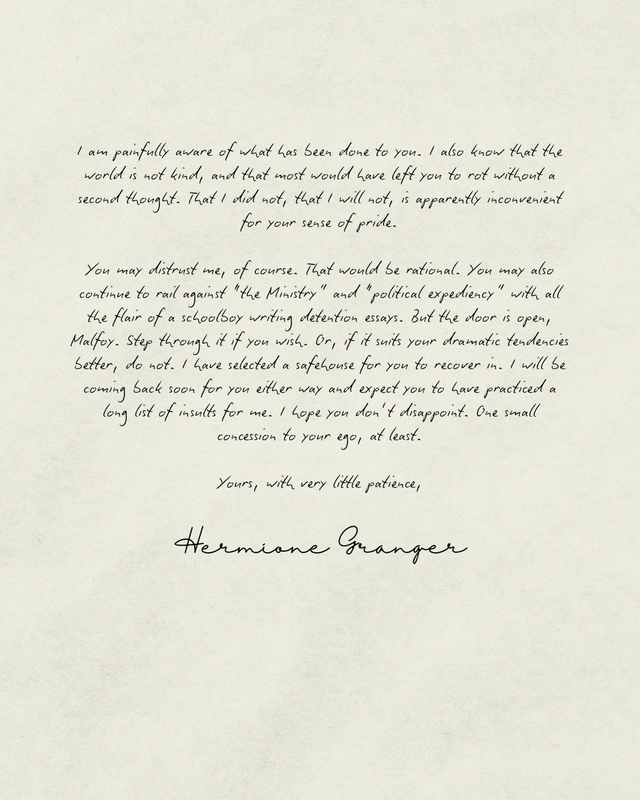 I am painfully aware of what has been done to you. I also know that the
world is not kind, and that most would have left you to rot without a
second thought. That I did not, that I will not, is apparently inconvenient
for your sense of pride.
You may distrust me, of course. That would be rational. You may also
continue to rail against "the Ministry" and "political expediency" with all
the flair of a schoolboy writing detention essays. But the door is open,
Malfoy. Step through it if you wish. Or, if it suits your dramatic tendencies
better, do not. I have selected a safehouse for you to recover in. I will be
coming back soon for you either way and expect you to have practiced a
long list of insults for me. I hope you don't disappoint. One small
concession to your ego, at least.
Yours, with very little patience,
Hermione Granger